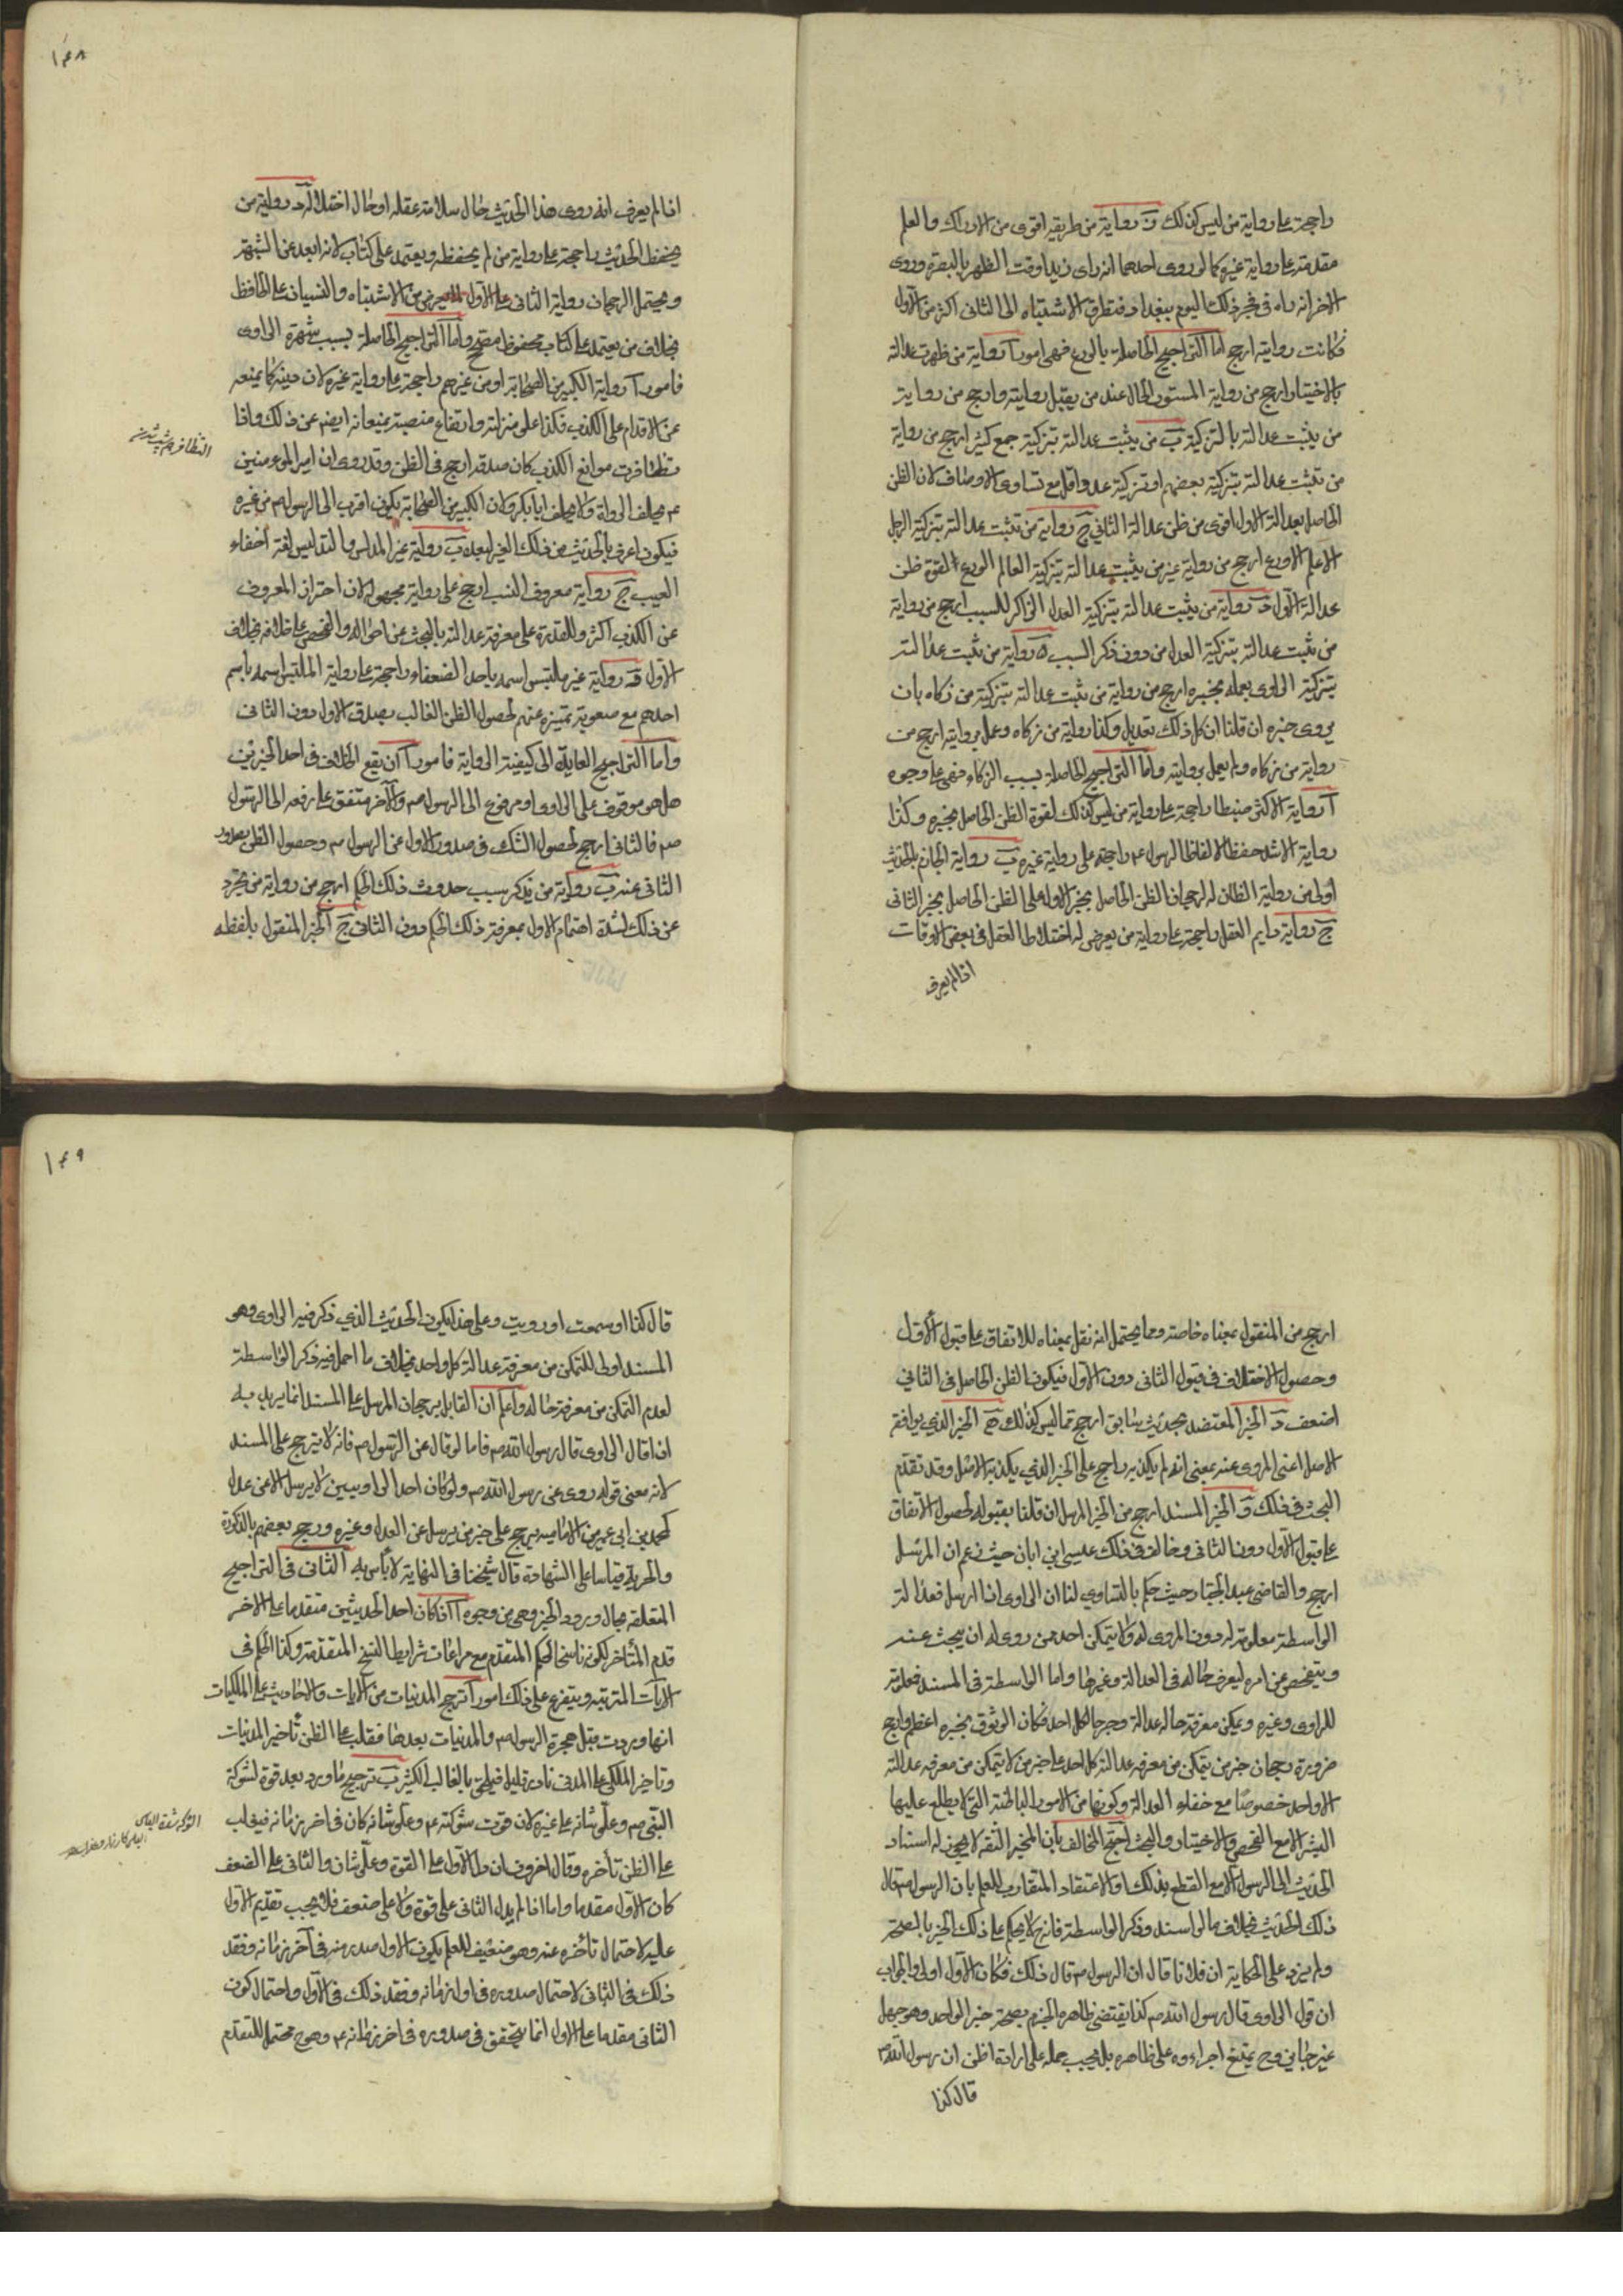 راجحة على رواية من ليس كذلك و رواية من طريقه اقوى من الادراك والعلم
مقدمة على رواية غيره كما لو روى احدهما انه راى زيدا وقت الظهر بالبصرة وروى
الاخر انه راه فى فجر ذلك اليوم ببغداد فتطرق الاشتباه الى الثانى اكثر من الاول
فكانت روايته ارجح اما التراجيح الحاصلة بالورع فهى امور آ رواية من ظهرت عدالته
بالاختبار ارجح من رواية المستور الحال عند من يقبل روايته وارجح من رواية
من يثبت عدالته بالتزكية ب من يثبت عدالته بتزكية جمع كثير ارجح من رواية
من تثبت عدالته بتزكية بعضهم او تزكية عدد اقل مع تساوى الاوصاف لان الظن
الحاصل بعدالة الاول اقوى من ظن عدالة الثانى ج رواية من تثبت عدالته بتزكية الرجل
الاعلم الاورع ارجح من رواية غيره من يثبت عدالته بتزكية العالم الورع لقوة ظن
عدالة الاول د رواية من يثبت عدالته بتزكية العدل الذاكر للسبب ارجح من رواية
من ثبت عدالته بتزكية العدل من دون ذكر السبب ه رواية من ثبت عدالته
بتزكية الراوى بعمله بخبره ارجح من رواية من ثبت عدالته بتزكية من زكاه بان
يروى خبره ان قلنا ان كل ذلك تعديل وكذا رواية من زكاه وعمل بروايته ارجح من
رواية من زكاه ولم يعمل بروايته واما التراجيح الحاصلة بسبب الذكاء فهى على وجوه
آ رواية الاكثر ضبطا راجحة على رواية من ليس كذلك لقوة الظن الحاصل بخبره وكذا
رواية الاشد حفظا لالفاظ الرسول ع راجحة على رواية غيره ب رواية الجازم بالحديث
اولى من رواية الظان له لرجحان الظن الحاصل بخبر الاول على الظن الحاصل بخبر الثانى
ج رواية دايم العقل راجحة على رواية من يعرض له اختلاط العقل فى بعض الاوقات
اذا لم يعرف
١٤٨
اذا لم يعرف انه روى هذا الحديث حال سلامة عقله او حال اختلاله د رواية من
يحفظ الحديث راجحة على رواية من لم يحفظه ويعتمد على كتاب لانه ابعد عن الشبهة
ويحتمل الرجحان رواية الثانى على الاول من الاشتباه والنسيان على الحافظ
بخلاف من يعتمد على كتاب محفوظ مصحح واما التراجيح الحاصلة بسبب شهرة الراوى
فامور آ رواية الكبير من الصحابة او من غيرهم راجحة على رواية غيره لان دينه كما يمنعه
عن الاقدام على الكذب فكذا علو منزلته وارتفاع منصبه يمنعانه ايضم عن ذلك واذا
تظافرت موانع الكذب كان صدقه ارجح فى الظن وقد روى ان امير المومنين
ع يحلف الرواة ولا يحلف ابا بكر ولان الكبير من الصحابة يكون اقرب الى الرسول م من غيره
فيكون اعرف بالحديث من ذلك الغير لبعده ب رواية غير المدلس والتدليس لغة اخفاء
العيب ج رواية معروف النسب ارجح على رواية مجهوله لان احتراز المعروف
عن الكذب اكثر وللقدرة على معرفة عدالته بالبحث عن احواله والفحص على خلافه بخلاف
الاول د رواية غير ملتبس اسمه باحد الضعفاء راجحة على رواية الملتبس اسمه باسم
احدهم مع صعوبة تميزه عنهم لحصول الظن الغالب بصدق الاول دون الثانى
واما التراجيح العايدة الى كيفية الرواية فامور آ ان يقع الخلاف فى احد الخبرين
هل هو موقوف على الراوى او مرفوع الى الرسول م والآخر متفق على رفعه الى الرسول
صم فالثانى ارجح لحصول الشك فى صدور الاول عن الرسول م وحصول الظن بصدور
الثانى عنه ب رواية من يذكر سبب حدوث ذلك الحكم ارجح من رواية من تجرد
عن ذلك لشدة اهتمام الاول بمعرفة ذلك الحكم دون الثانى ج الخبر المنقول بلفظه
ارجح من المنقول بمعناه خاصة ومما يحتمل انه نقل بمعناه للاتفاق على قبول الاول
وحصول الاختلاف فى قبول الثانى دون الاول فيكون الظن الحاصل فى الثانى
اضعف د الخبر المعتضد بحديث سابق ارجح مما ليس كذلك ه الخبر الذي يوافقه
الاصل اعنى المروى عنه بمعنى انه لم يكذبه راجح على الخبر الذي يكذبه الاصل وقد تقدم
البحث فى ذلك و الخبر المسند ارجح من الخبر المرسل ان قلنا بقبوله لحصول الاتفاق
على قبول الاول دون الثانى وخالف فى ذلك عيسى ابن ابان حيث زعم ان المرسل
ارجح والقاضى عبد الجبار حيث حكم بالتساوي لنا ان الراوى اذا ارسل فعدالة
الواسطة معلومة له دون المروى له ولا يتمكن احد من روى له ان يبحث عنه
ويتفحص عن امره ليعرف حاله فى العدالة وغيرها واما الواسطة فى المسند فمعلومة
للراوى وغيره ويمكن معرفة حاله عدالة وجرحا لكل احد فكان الوثوق بخبره اعظم وارجح
ضرورة رجحان خبر من يتمكن من معرفة عدالته كل احد على خبر من لا يتمكن من معرفة عدالته
الا واحد خصوصا مع خفاء العدالة وكونها من الامور الباطنة التى لا يطلع عليها
البشر الا مع الفحص والاختبار والبحث احتج المخالف بان المخبر الثقة لا يجوز له اسناد
الحديث الى الرسول الا مع القطع بذلك والاعتقاد المتقارب للعلم بان الرسول م قال
ذلك الحديث بخلاف ما لو اسند وذكر الواسطة فانه لا يحكم على ذلك الخبر بالصحة
ولم يزد على الحكاية ان فلانا قال ان الرسول م قال ذلك فكان الاول اولى والجواب
ان قول الراوى قال رسول الله صم كذا يقتضى ظاهره الجزم بصحة خبر الواحد وهو جهل
غير جايز وح يمتنع اجراءوه على ظاهره بل يجب حمله على ارادة اظن ان رسول الله م
قال كذا
١٤٩
قال كذا او سمعت او رويت وعلى هذا يكون الحديث الذي ذكر فيه الراوى وهو
المسند اولى للتمكن من معرفة عدالة كل واحد بخلاف ما اهمل فيه ذكر الواسطة
لعدم التمكن من معرفة حاله واعلم ان القايل برجحان المرسل على المسند انما يريد به
اذا قال الراوى قال رسول الله صم فاما لو قال عن الرسول م فانه لا يترجح على المسند
لانه معنى قوله روى عن رسول الله صم ولو كان احد الراويين لا يرسل الا عن عدل
كمحمد بن ابى عمير من الامامية رجح على خبر من يرسل عن العدل وغيره ورجح بعضهم بالذكورة
والحرية قياسا على الشهادة قال شيخنا فى النهاية لا بأس به الثانى فى التراجيح
المتعلقة بحال ورود الخبر وهى من وجوه آ ان كان احد الحديثين متقدما على الاخر
قدم المتأخر لكونه ناسخا لحكم المتقدم مع مراعات شرايط النسخ المتقدمة وكذا الحكم فى
الآيات المترتبة ويتفرع على ذلك امور آ ترجح المدنيات من الآيات والاحاديث على المكيات
انها وردت قبل هجرة الرسول م والمدنيات بعدها فغلب على الظن تأخير المدنيات
وتاخير المكى على المدنى نادر قليل فيلحق بالغالب الكثير ب ترجيح ما ورد بعد قوة لشوكة
النبى صم وعلو شانه على غيره لان قوت شوكته ع وعلو شانه كان فى اخر زمانه فيغلب
على الظن تأخره وقال اخرون ان دل الاول على القوة وعلو شان والثانى على الضعف
كان الاول مقدما واما اذا لم يدل الثانى على قوة ولا على ضعف فلا يجب تقديم الاول
عليه لاحتمال تأخره عنه وهو ضعيف للعلم بكون الاول صدر منه فى آخر زمانه وفقد
ذلك فى الثانى لاحتمال صدوره فى اول زمانه وفقد ذلك فى الاول واحتمال كون
الثانى مقدما على الاول انما يتحقق فى صدوره فى اخر زمانه ع وهو ح محتمل للتقدم